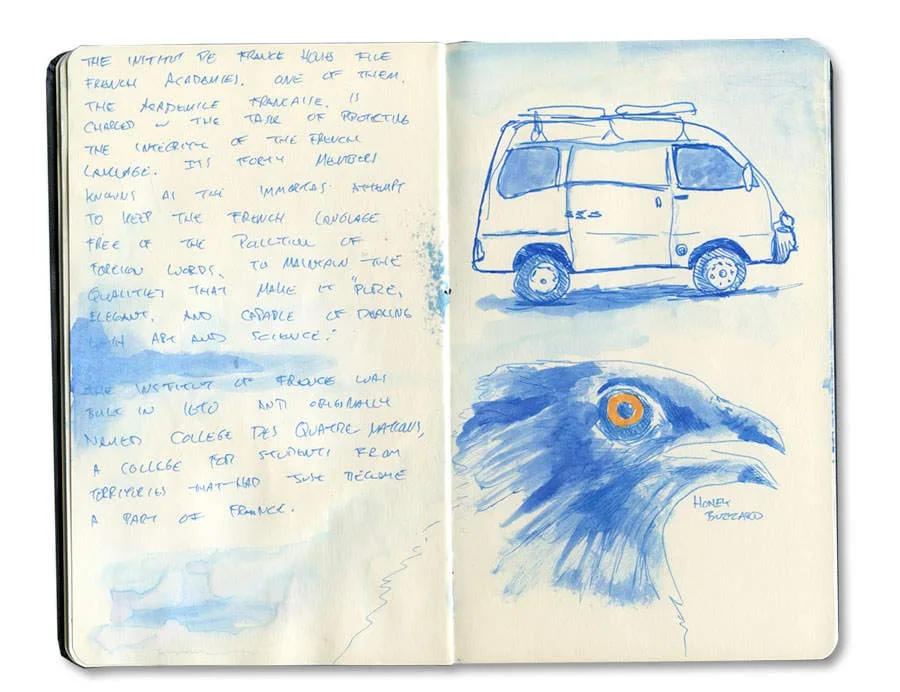 THE INSTITUT DE FRANCE HOUSES FIVE
FRENCH ACADEMIES. ONE OF THEM,
THE ACADEMIE FRANCAISE, IS
CHARGED W THE TASK OF PROTECTING
THE INTEGRITY OF THE FRENCH
LANGUAGE. ITS FORTY MEMBERS
KNOWNS AS THE IMMORTALS ATTEMPT
TO KEEP THE FRENCH LANGUAGE
FREE OF THE POLLUTION OF
FOREIGN WORDS, TO MAINTAIN "THE
QUALITIES THAT MAKE IT "PURE,
ELEGANT, AND CAPABLE OF DEALING
WITH ART AND SCIENCE."
THE INSTITUT OF FRANCE WAS
BUILT IN 1670 AND ORIGINALLY
NAMED COLLEGE DES QUATRE NATIONS,
A COLLEGE FOR STUDENTS FROM
TERRITORIES THAT HAD JUST BECOME
A PART OF FRANCE.
HONEY
BUZZARD